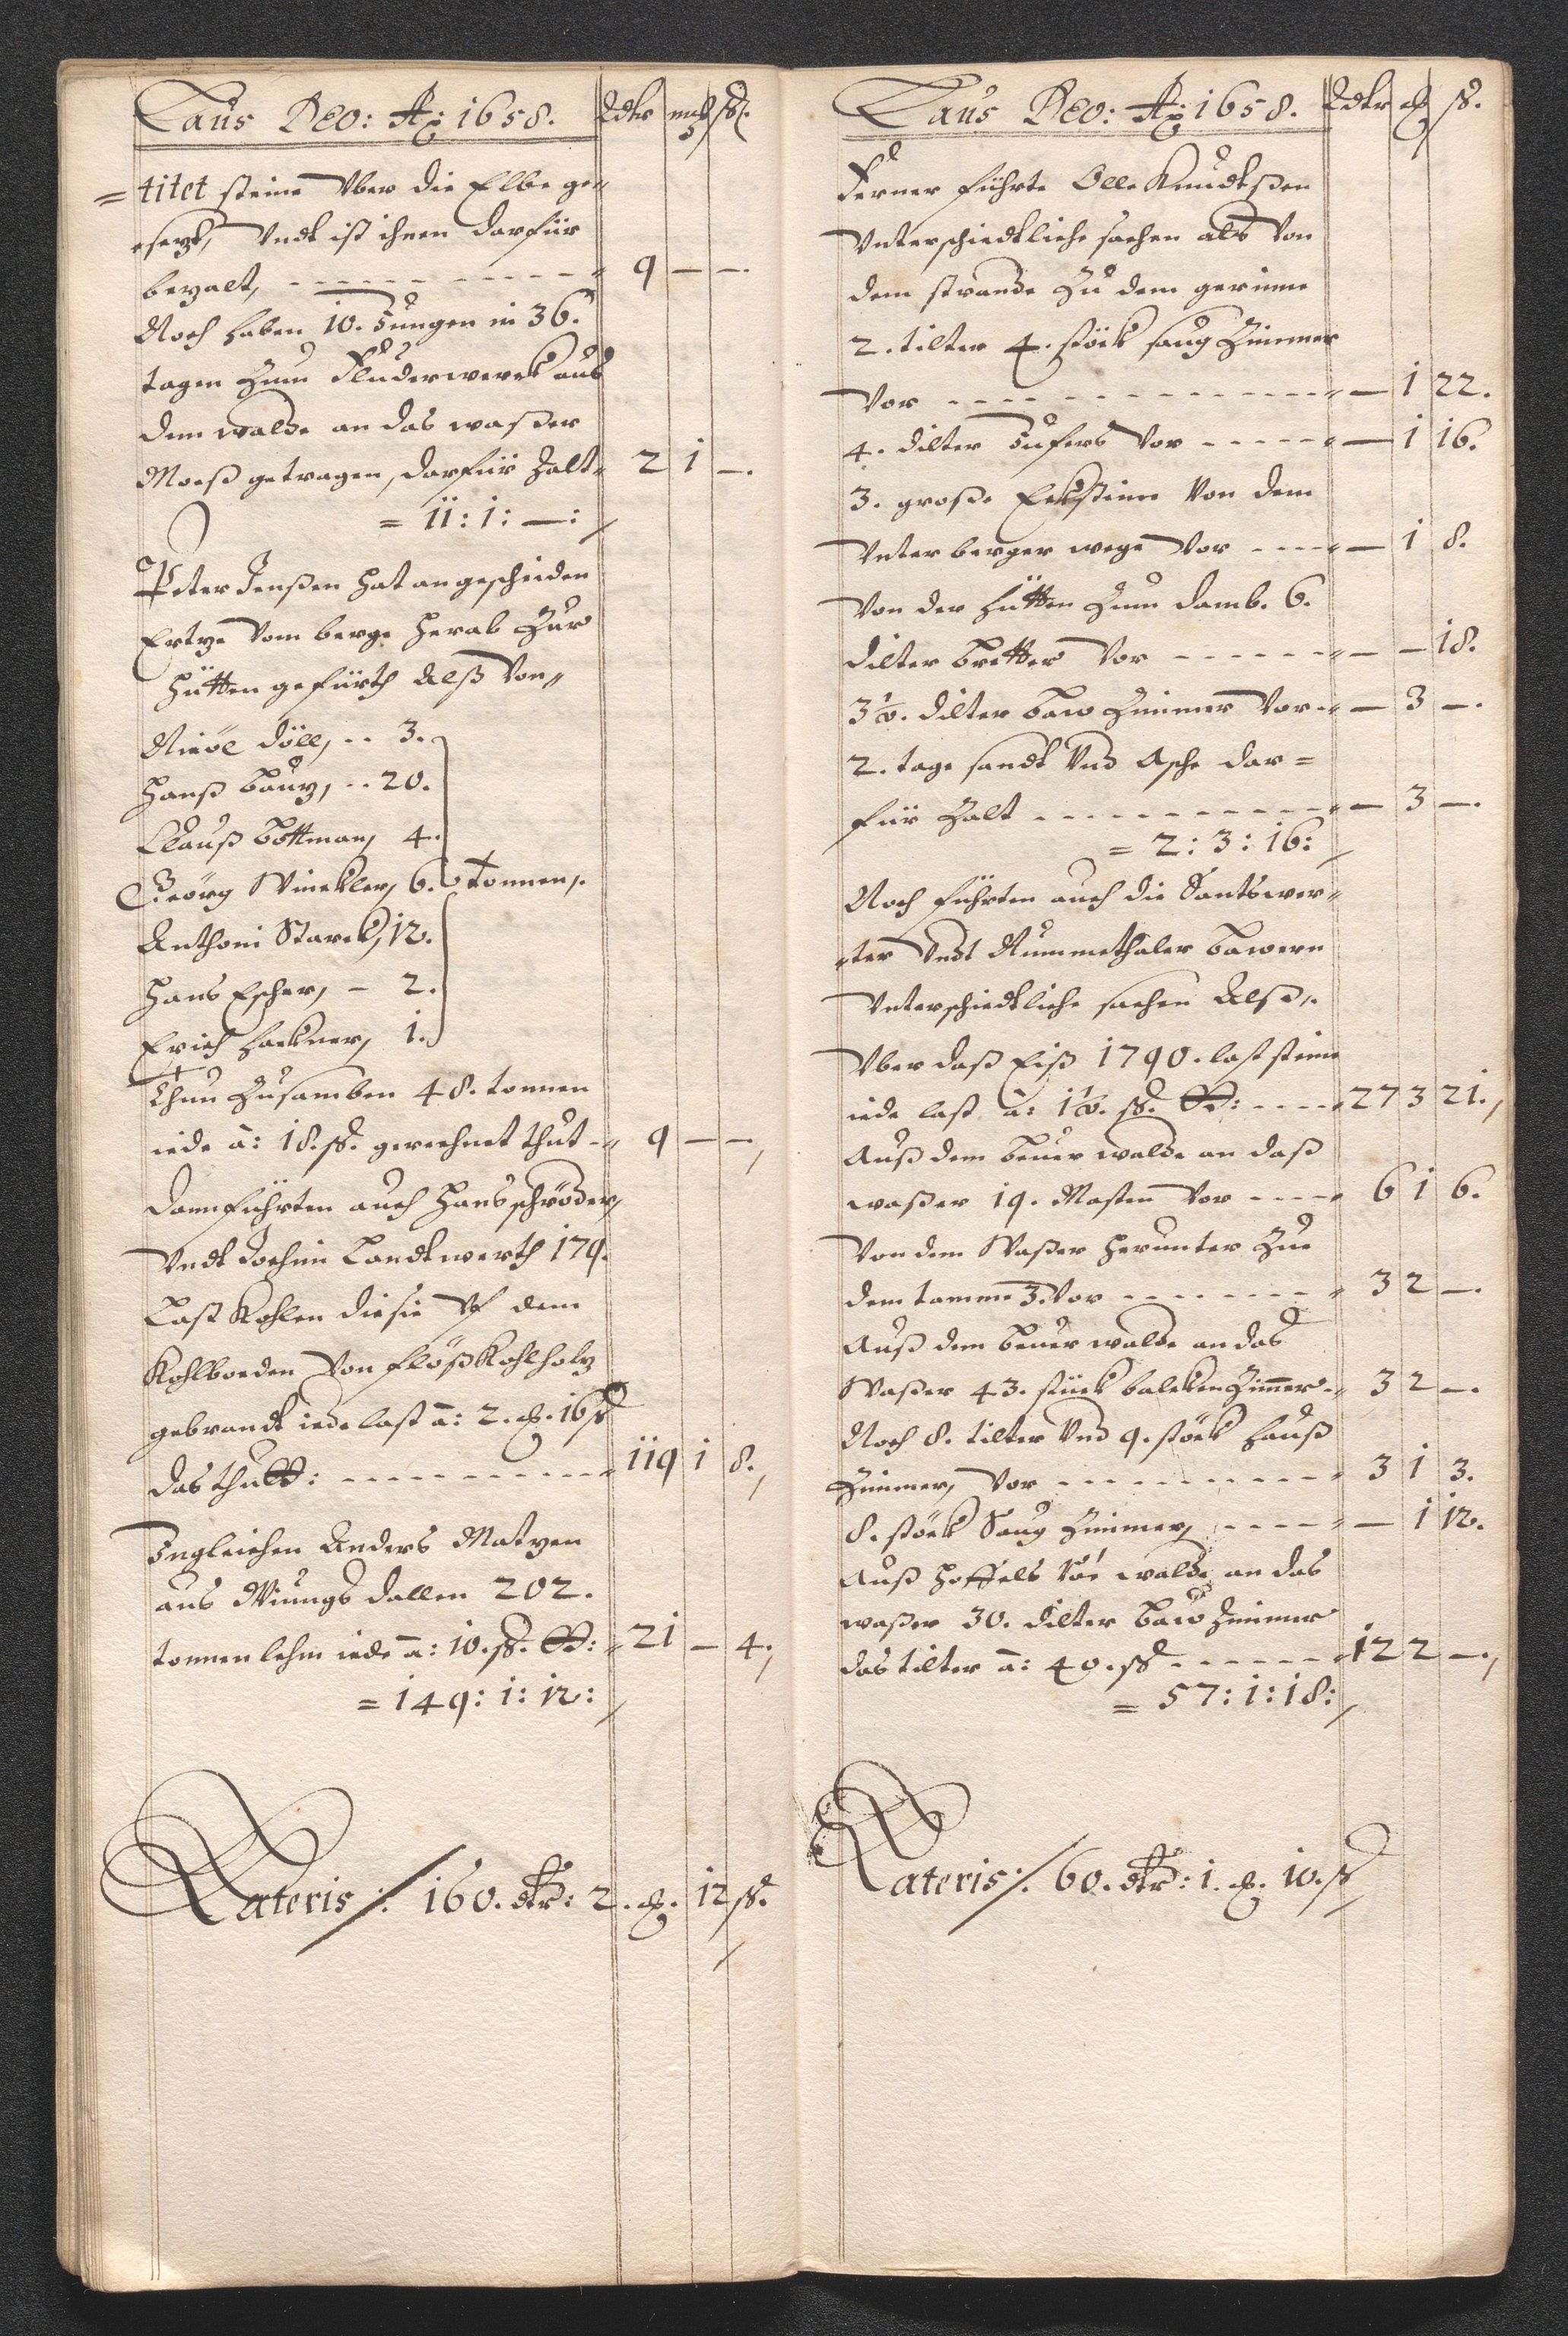 Laus Deo: Aō: 1658. Rdlr mℓ ß.
=titet steine Vber die Elbe ge=
=setzt, Vndt ist ihnen darfür
bezalt, - - - - - 9 — —.
Noch haben 10. Jungen in 36.
tagen Zum Fluderwerck aus
dem walde an das waßer
Moeß getragen, darfür Zalt 2 1 —.
= 11: 1: —:
Peter Jenßen hat angeschieden
Ertze Vom berge herab Zur
Hütten geführth Alß Von
Niæl döll, .. 3.
Hanß bautz, .. 20.
Clauß bottman, 4.
Georg Winckler, 6. tonnen,.
Anthoni Starck, 12.
Hans Escher, - 2.
Erich hackner, 1.
Thun Zusamben 48. tonnen
iede à: 18. ß. gerechnet thut - 9 — —,
Dann führten auch Hans schröder,
Vndt Jochim Landtwerth 179.
Last Kohlen die sie Vf dem
Kohlboeden Von flößKohlholtz
gebrandt iede last à: 2. ℳ. 16 ß
das thutt: - - - - - 119 1 8.,
Ingleichen Anders Matzen
aus Wiungs dallen 202.
tonnen lehm iede à: 10. ß. 21 — 4.,
= 149: 1: 12:
Lateris /: 160. dlr: 2. ℳ. 12 ß.
Laus Deo: Aō: 1658. Rdlr ℳ ß.
Ferner führte Olle Knudtßen
Vnterschiedtliche sachen als Von
dem strande Zu dem gerinne
2. tilter 4. stöck saug Zimmer
Vor - - - - - — 1 22.
4. dilter Jufers Vor - - - - - — 1 16.
3. große Ecksteine Von dem
Vnter berger wege Vor - - - - — 1 8.
Von der hütten Zum damb. 6.
dilter bretter Vor - - - - - — — 18.
3½. dilter baw Zimmer Vor - — 3 —.
2. tage sandt Vnd Asche dar=
für Zalt - - - - - — 3 —.
= 2: 3: 16:
Noch führten auch die Santswer=
=ter Vndt Nummethaler bawern
Vnterschiedtliche sachen Alß,.
Vber daß Eiß 1790. last steine
iede last à: 1½. ß. - - - - 27 3 21.,
Auß dem beuer walde an daß
waßer 19. Masten Vor - - - - 6 1 6.
Von dem Waßer herunter Zue
dem tamme 3. Vor - - - - - 3 2 —.
Auß dem beuer walde an das
Waßer 43. stück balcken Zimmer - 3 2 —.
Noch 8. tilter Vnd 9. stöck hauß
Zimmer, Vor - - - - - 3 1 3.
8. stöck Saug Zimmer, - - - - — 1 12.
Auß hoffels walde an das
waßer 30. dilter baw Zimmer
das tilter à: 40. ß - - - - - 12 2 —,
= 57: 1: 18:
Lateris /: 60. dlr: 1. ℳ. 10. ß